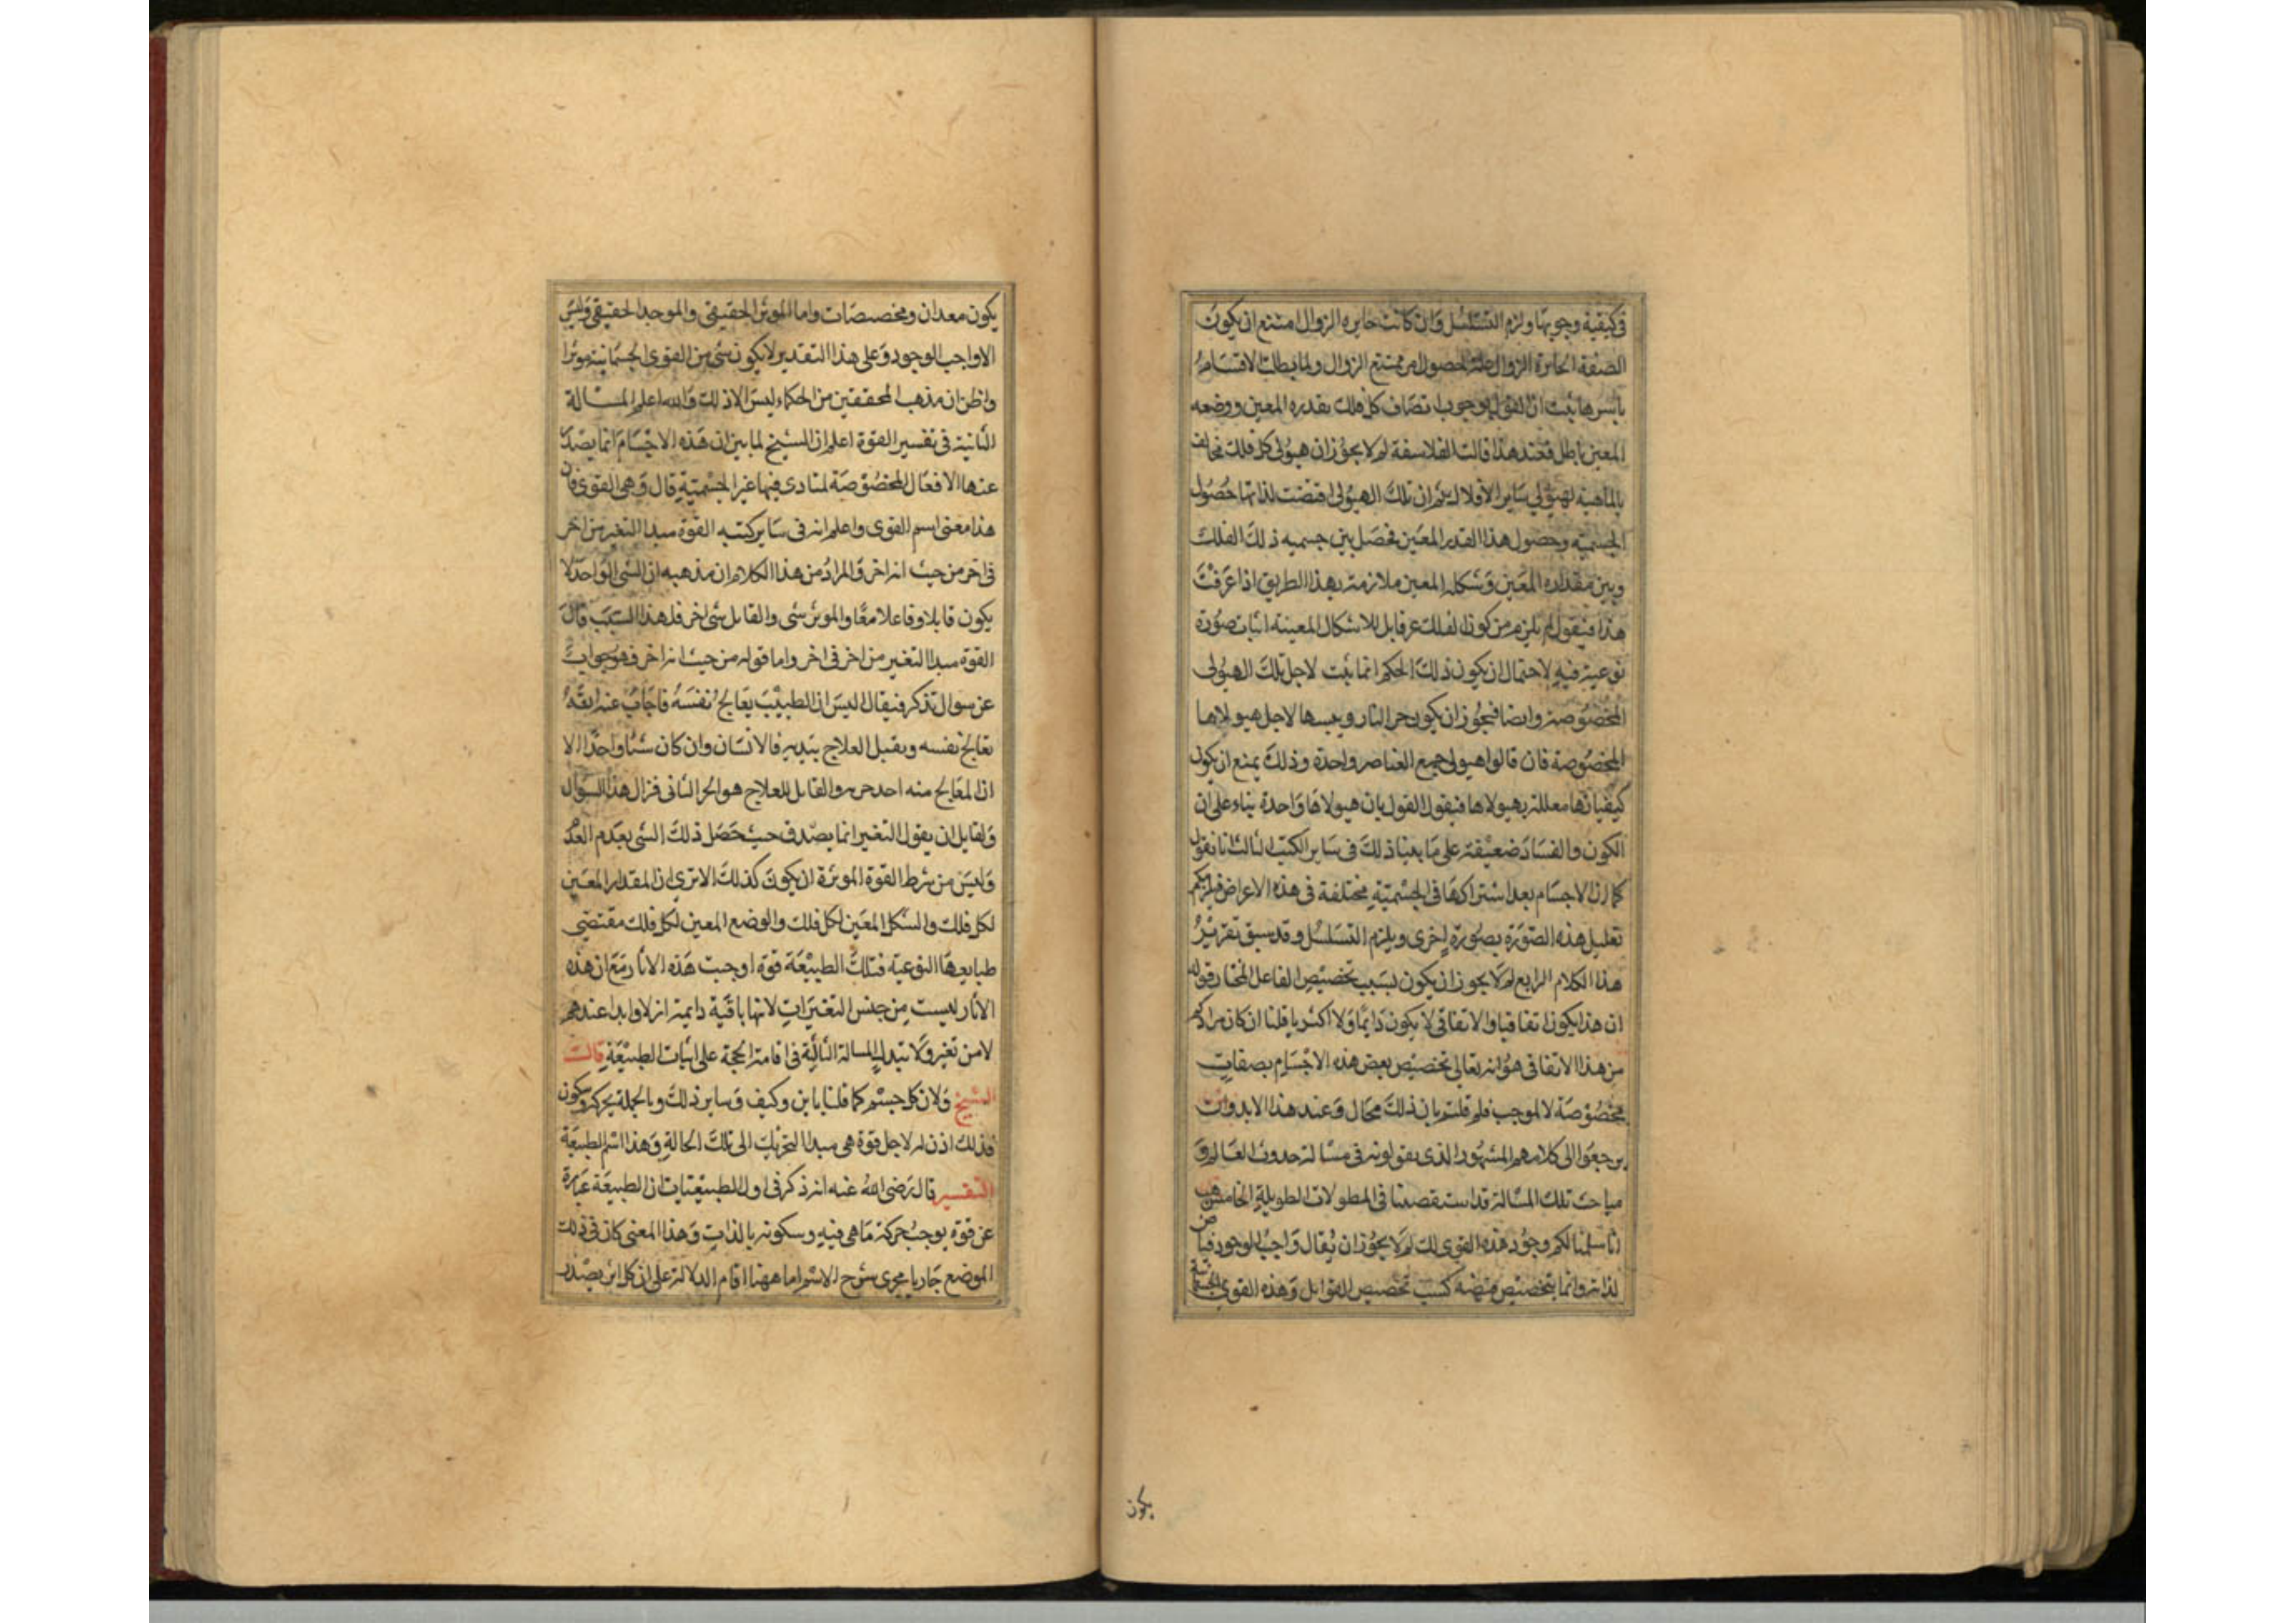 في كيفية وجوبها ولزم التسلسل وان كانت جايزه الزوال امتنع ان يكون
الصفة الجايزة الزوال علة لحصول ممتنع الزوال ولما بطلت الاقسام
باسرها ثبت ان القول بوجوب اتصاف كل فلك بقدره المعين ووضعه
المعين باطل فعند هذا قالت الفلاسفة لم لا يجوز ان هيولى كل فلك مخالف
بالماهية لهيولي ساير الافلاك ثم ان تلك الهيولى اقتضت لذاتها حصول
الجسمية وحصول هذا القدر المعين فحصل بين جسميه ذلك الفلك
وبين مقداره المعين وشكله المعين ملازمة بهذا الطريق اذا عرفت
هذا فنقول لم يلزم من كون الفلك غير قابل للاشكال المعينه اثبات صورة
نوعية فيه لاحتمال ان يكون ذلك الحكم انما يثبت لاجل تلك الهيولى
المخصوصة وايضا فيجوز ان يكون حر النار ويبسها لاجل هيولاها
المخصوصة فان قالوا هيولى جميع العناصر واحدة وذلك يمنع ان يكون
كيفياتها معللة بهيولاها فنقول القول بان هيولاها واحدة بناء على ان
الكون والفساد ضعيفة على ما بينا ذلك في ساير الكتب الثالث انا نقول
كما ان الاجسام بعد اشتراكها في الجسمية مختلفة في هذه الاعراض فيلزمكم
تعليل هذه الصورة بصورة اخرى ويلزم التسلسل وقد سبق تقرير
هذا الكلام الرابع لم لا يجوز ان يكون بسبب تخصيص الفاعل المختار قوله
ان هذا يكون اتفاقيا والاتفاقي لا يكون دايما ولا اكثريا قلنا ان كان مرادكم
من هذا الاتفاقى هو انه تعالى تخصيص بعض هذه الاجسام بصفات
مخصوصة لا لموجب فلم قلتم بان ذلك محال وعند هذا لا بد وان
يرجعوا الى كلامهم المشهور الذى يقولونه في مسالة حدوث العالم و
مباحث تلك المسالة قد استقصينا في المطولات الطويلة الخامس هب
انا سلمنا لكم وجود هذه القوى لكن لم لا يجوز ان يقال واجب الوجود فياض
لذاته وانما يتخصيص فيضه كسب تخصيص القوابل وهذه القوى الجسمانية
يكون
يكون معدات ومخصصات واما الموثر الحقيقي والموجد الحقيقي وليس
الا واجب الوجود وعلى هذا التقدير لا يكون شئ من القوى الجسمانية موثرا
واظن ان مذهب المحققين من الحكماء ليس الا ذلك والله اعلم المسالة
الثانية في تفسير القوة اعلم ان الشيخ لما بين ان هذه الاجسام انما يصدر
عنها الافعال المخصوصة لمبادى فيها غير الجسمية قال وهى القوى فان
هذا معنى اسم القوى واعلم انه في ساير كتبه القوة مبدا التغير من اخر
في اخر من حيث انه اخر والمراد من هذا الكلام ان مذهبه ان الشى الواحد لا
يكون قابلا وفاعلا معًا والموثر شى والقابل شى اخر فلهذا السبب قال
القوة مبدا التغير من اخر في اخر واما قوله من حيث انه اخر فهو جواب
عن سوال تذكر فيقال اليس ان الطبيب يعالج نفسه فاجاب عنه بقوله
تعالج نفسه ويقبل العلاج ببدنه فالانسان وان كان شيا واحدا الا
ان المعالج منه احد جزيه والقابل للعلاج هو الجزء الثانى فزال هذا السوال
ولقايل ان يقول التغير انما يصدق حيث حصل ذلك الشى بعد العدم
وليس من شرط القوة الموثرة ان يكون كذلك الا ترى ان المقدار المعين
لكل فلك والشكل المعين لكل فلك والوضع المعين لكل فلك مقتضي
طبايعها النوعيه فتلك الطبيعة قوة اوجبت هذه الاثار مع ان هذه
الاثار ليست من جنس التغيرات لانها باقية دايمة ازلا وابدا عندهم
لا من تغير ولا تبدل المسالة الثالثة في اقامة الحجة على اثبات الطبيعة قالت
الشيخ ولان كل جسم كما قلنا باين وكيف وساير ذلك وبالجملة بحركة وسكون
فذلك اذن له لاجل قوة هى مبدا التحريك الى تلك الحالة وهذا اسم الطبيعة
التفسير قال رضى الله عنه انه ذكر في اول الطبيعيات ان الطبيعة عبارة
عن قوة يوجب حركة ما هى فيه وسكونه بالذات وهذا المعنى كان في ذلك
الموضع جاريا مجرى شرح الاسم اما ههنا اقام الدلالة على ان كل اثر يصدر